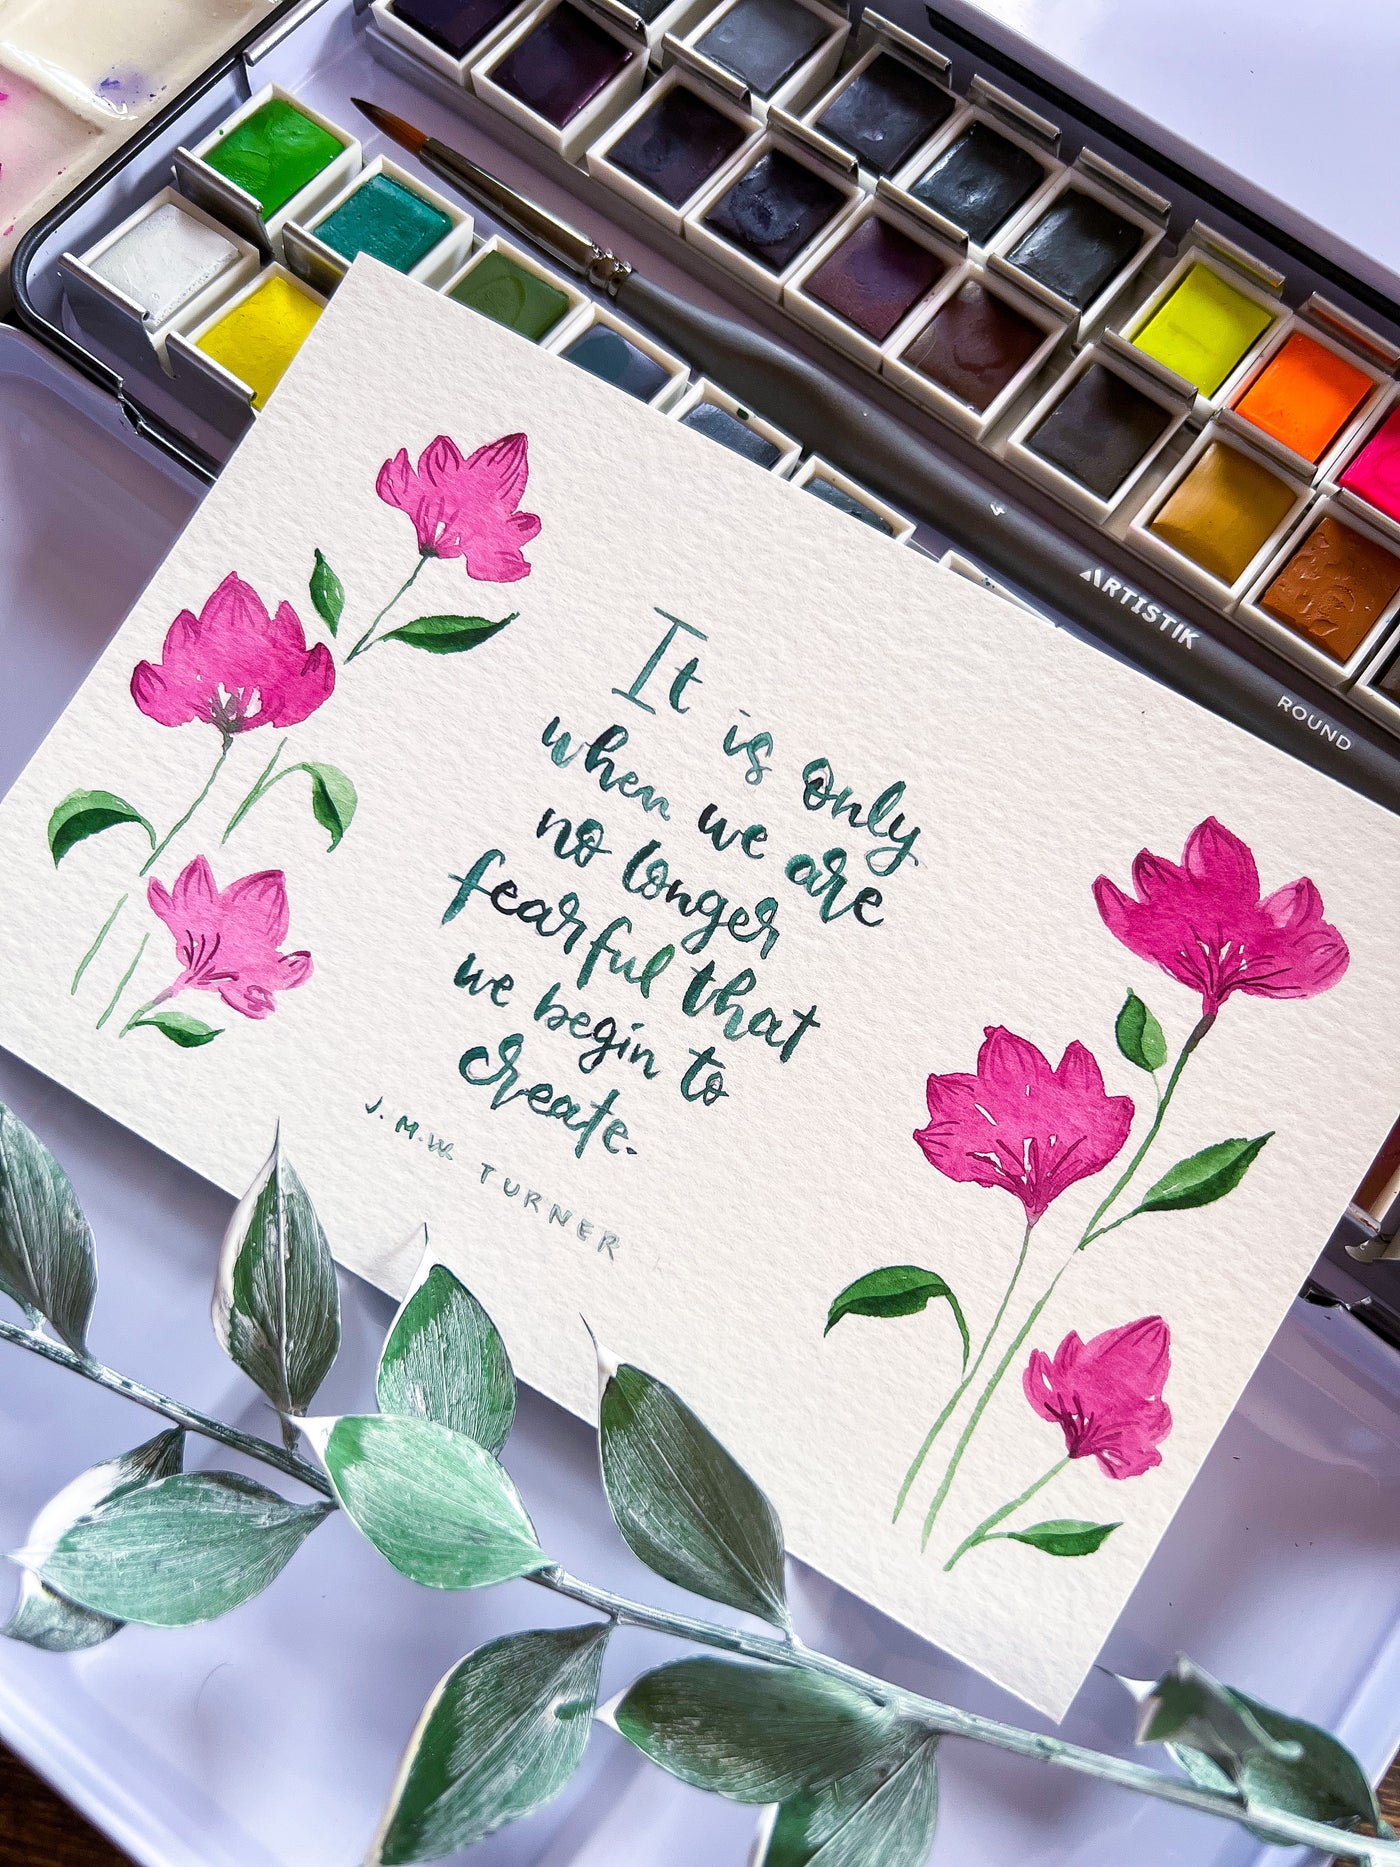 4
ARTISTIK
ROUND
It is only
when we are
no longer
fearful that
we begin to
create.
J. M.W. TURNER